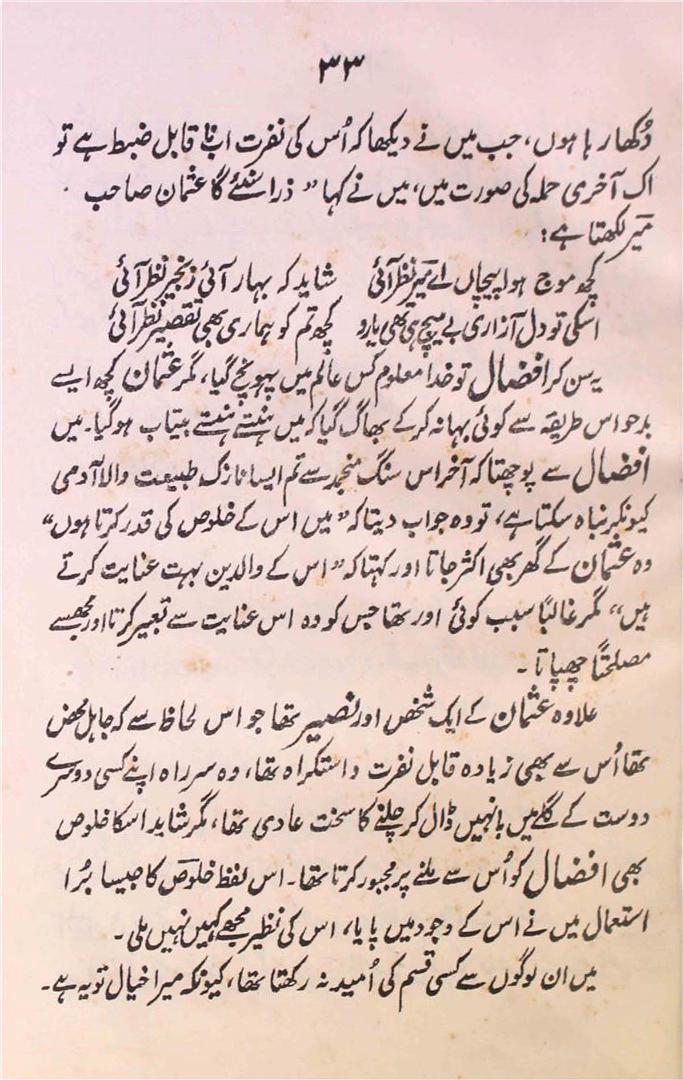 ۳۳
دُکھا رہا ہوں، جب میں نے دیکھا کہ اُس کی نفرت اب ناقابل ضبط ہے تو
اک آخری حملہ کی صورت میں، میں نے کہا "ذرا سنئے گا عثمان صاحب
میر لکھتا ہے:
کچھ موج ہوا پیچاں اے میر نظر آئی شاید کہ بہار آئی زنجیر نظر آئی
اسکی تو دل آزاری بے ہیچ ہی تھی یارو کچھ تم کو ہماری بھی تقصیر نظر آئی
یہ سن کر افضال تو خدا معلوم کس عالم میں پہونچ گیا، مگر عثمان کچھ ایسے
بدحواس طریقہ سے کوئی بہانہ کرکے بھاگ گیا کہ میں ہنستے ہنستے بیتاب ہوگیا۔ میں
افضال سے پوچھتا کہ آخر اس سنگ منجمد سے تم ایسا نازک طبیعت والا آدمی
کیونکر نباہ سکتا ہے، تو وہ جواب دیتا کہ "میں اس کے خلوص کی قدر کرتا ہوں"
وہ عثمان کے گھر بھی اکثر جاتا اور کہتا کہ "اس کے والدین بہت عنایت کرتے
ہیں" مگر غالباً سبب کوئی اور تھا جس کو وہ اس عنایت سے تعبیر کرتا اور مجھسے
مصلحتاً چھپاتا۔
علاوہ عثمان کے ایک شخص اور نصیر تھا جو اس لحاظ سے کہ جاہل محض
تھا اُس سے بھی زیادہ قابل نفرت و استکراہ تھا، وہ سر راہ اپنے کسی دوسرے
دوست کے گلے میں بانہیں ڈال کر چلنے کا سخت عادی تھا، مگر شاید اسکا خلوص
بھی افضال کو اُس سے ملنے پر مجبور کرتا تھا۔ اس لفظ خلوص کا جیسا بُرا
استعمال میں نے اس کے وجود میں پایا، اس کی نظیر مجھے کہیں نہیں ملی۔
میں ان لوگوں سے کسی قسم کی اُمید نہ رکھتا تھا، کیونکہ میرا خیال تو یہ ہے۔